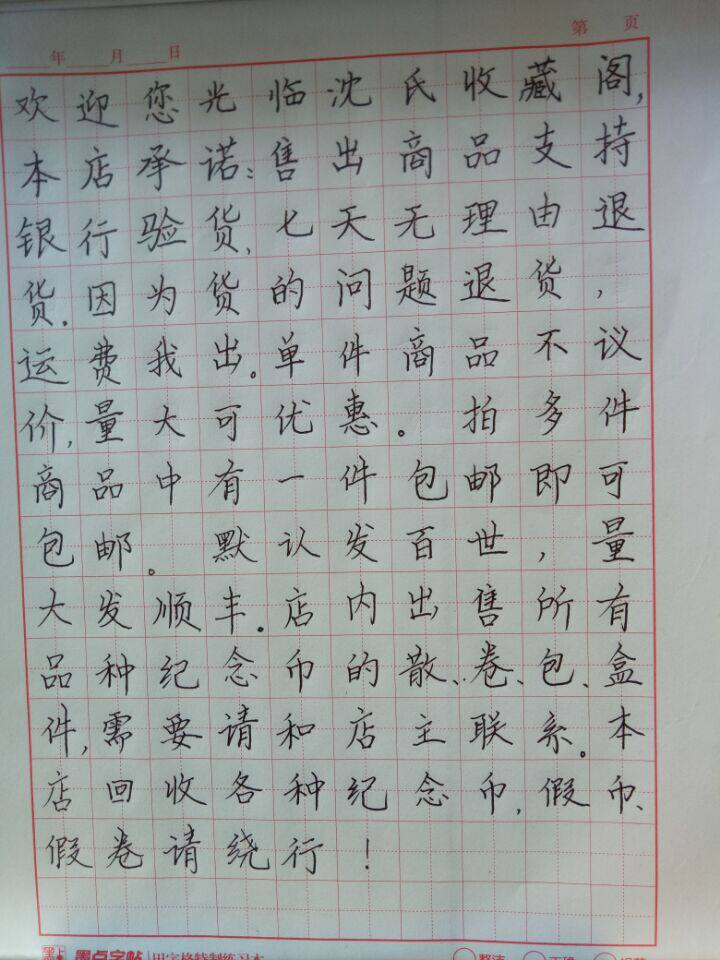 第 页
年 月 日
欢迎您光临沈氏收藏阁,
本店承诺:售出商品支持
银行验货,七天无理由退
货.因为货的问题退货,
运费我出。单件商品不议
价,量大可优惠。拍多件
商品中有一件包邮即可
包邮。默认发百世,量
大发顺丰.店内出售所有
品种纪念币的散、卷、包、盒
件,需要请和店主联系。本
店回收各种纪念币,假币、
假卷请绕行!
墨点字帖 田字格特制练习本 整洁 正确